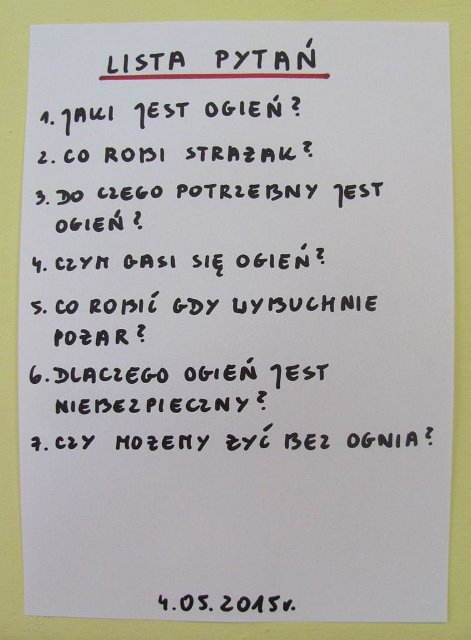 LISTA PYTAŃ
1. JAKI JEST OGIEŃ?
2. CO ROBI STRAŻAK?
3. DO CZEGO POTRZEBNY JEST
OGIEŃ?
4. CZYM GASI SIĘ OGIEŃ?
5. CO ROBIĆ GDY WYBUCHNIE
POŻAR?
6. DLACZEGO OGIEŃ JEST
NIEBEZPIECZNY?
7. CZY MOŻEMY ŻYĆ BEZ OGNIA?
4.05.2015r.